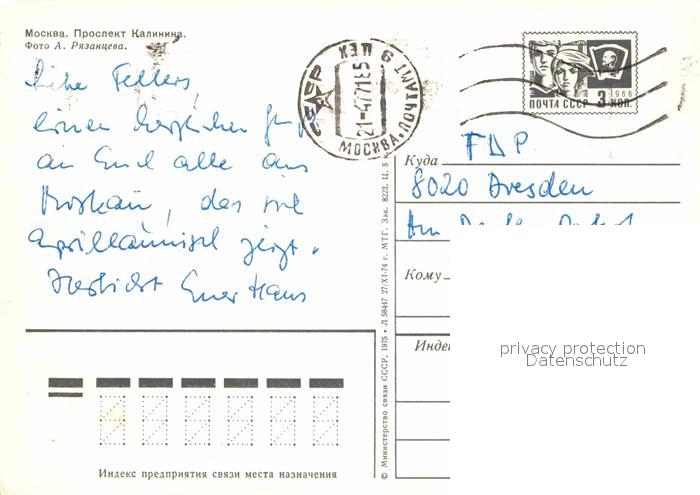 Москва. Проспект Калинина.
Фото А. Рязанцева.
Liebe Fellers,
einen herzlichen Gruß
an Euch alle aus
Moskau, das sich
aprillaunisch zeigt.
Herzlichst Euer Hans
СССР
21-4771185
МОСКВА. ПОЧТАМТ 9 ЦЕХ
1966
ПОЧТА СССР 3 КОП.
Куда FDP
8020 Dresden
Кому
Индек
privacy protection
Datenschutz
Индекс предприятия связи места назначения
© Министерство связи СССР, 1975 • Л 58447 27/XI-74 г. МТГ. Зак. 8223. Ц. 5 к.